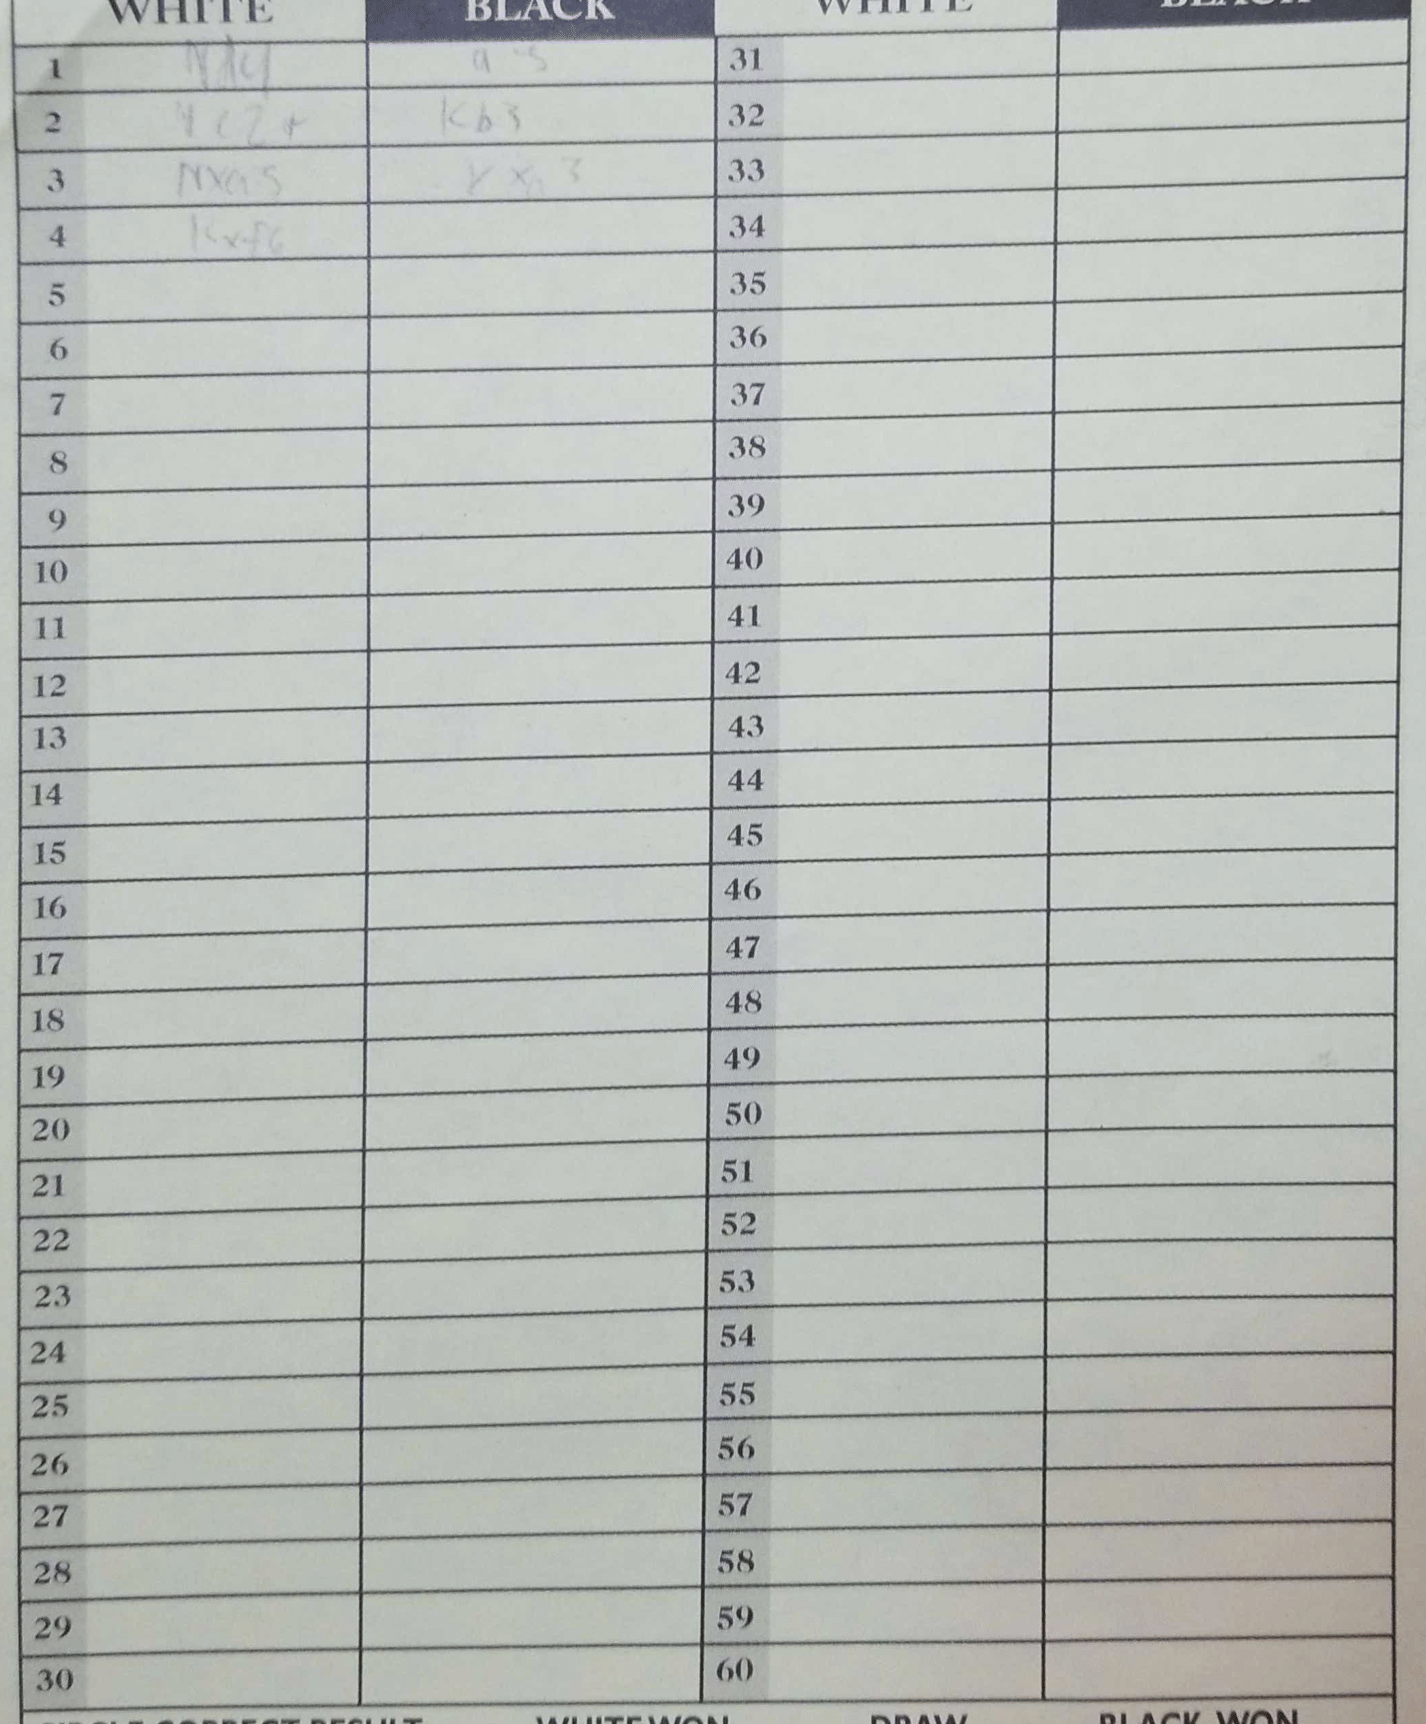 WHITE BLACK WHITE BLACK
1 a5 31
2 Kb3 32
3 Nxa5 33
4 Kxf6 34
5 35
6 36
7 37
8 38
9 39
10 40
11 41
12 42
13 43
14 44
15 45
16 46
17 47
18 48
19 49
20 50
21 51
22 52
23 53
24 54
25 55
26 56
27 57
28 58
29 59
30 60
CIRCLE CORRECT RESULT WHITE WON DRAW BLACK WON